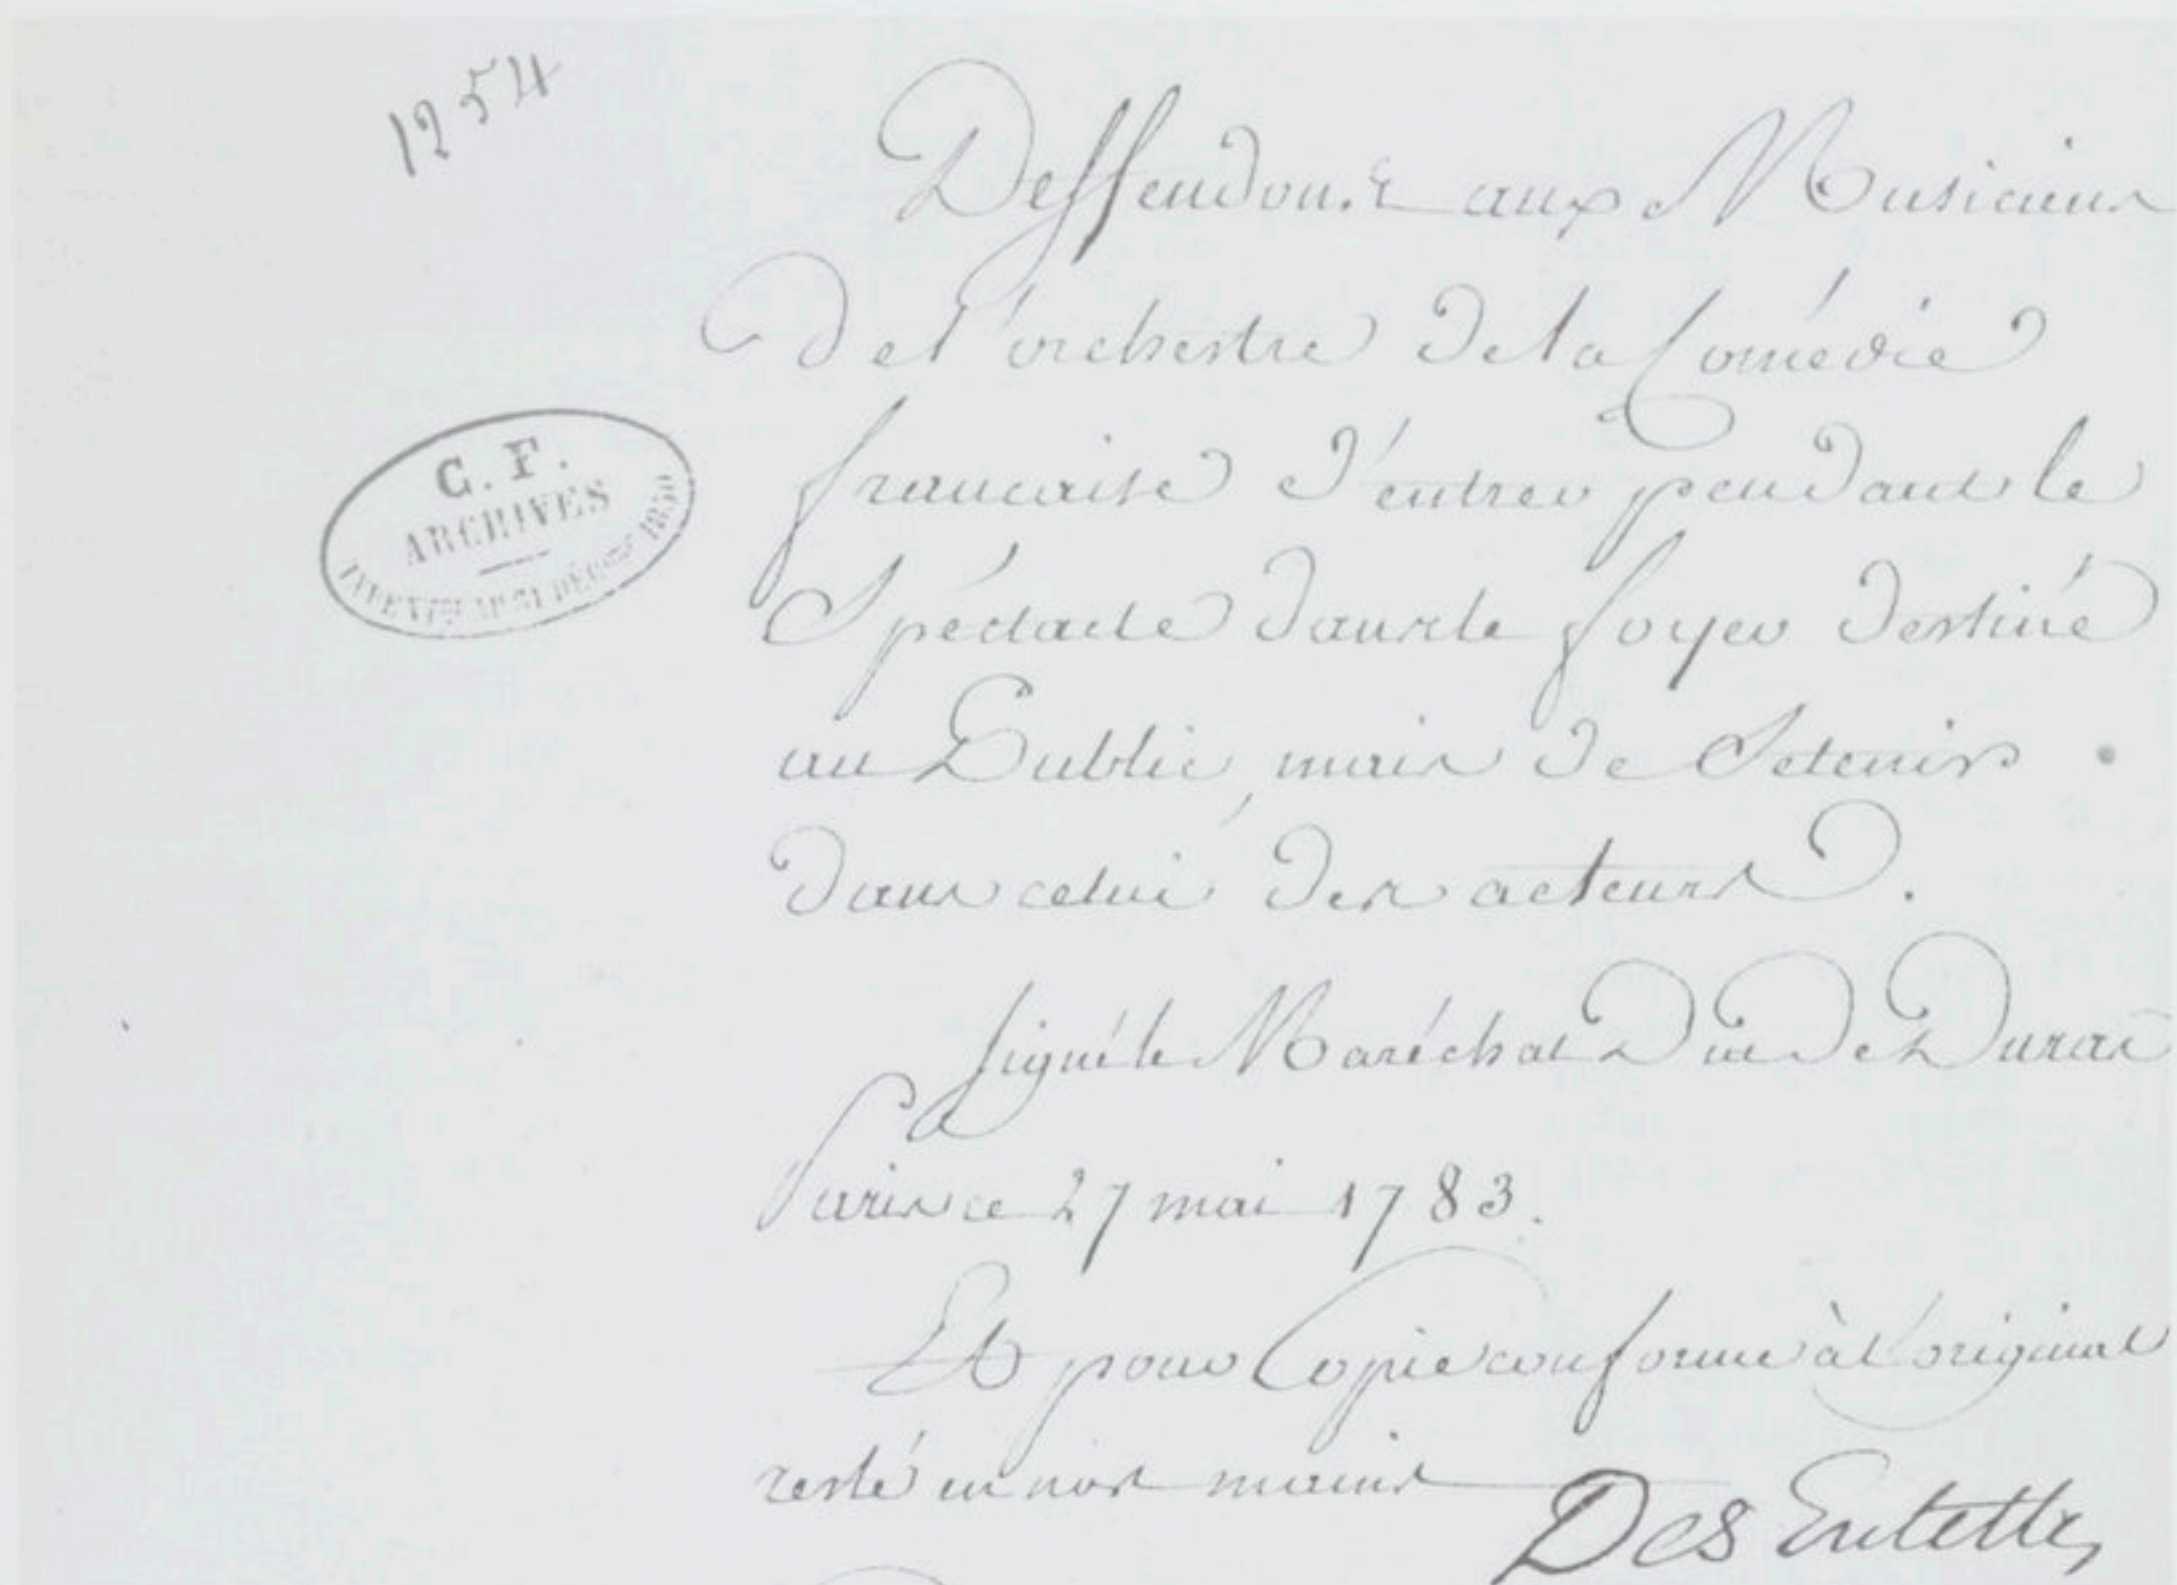 1254
Deffendons aux Musiciens
de l'orchestre de la Comédie
francaise d'entrer pendant le
Spéctacle dans le foyer destiné
au Public, mais de Se tenir
dans celui des acteurs.
C. F.
ARCHIVES
1850
Signé le Maréchal Duc de Duras
Paris ce 27 mai 1783.
Et pour Copie conforme à l'original
resté en nos mains
Des Entelles